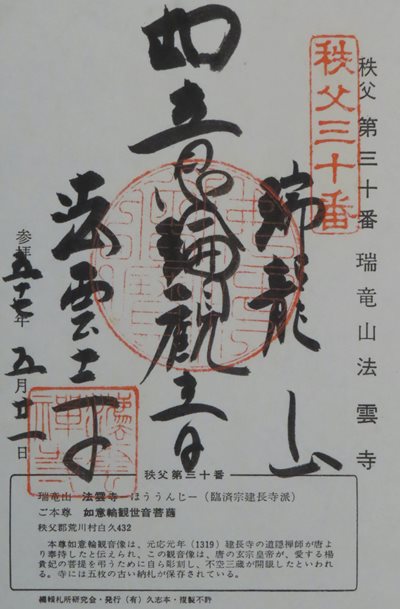 秩父第三十番 瑞竜山法雲寺
秩父三十番
瑞龍山
如意輪観音
法雲寺
参拝五十七年五月廿一日
秩父第三十番
瑞竜山 法雲寺−ほううんじ−(臨済宗建長寺派)
ご本尊 如意輪観世音菩薩
秩父郡荒川村白久432
この観音像は、元応元年(1319)建長寺の道隠禅師が唐よ
り奉持したと伝えられ、この観音像は、唐の玄宗皇帝が、愛する楊
貴妃の菩提を弔うために自ら彫刻し、不空三蔵が開眼したといわれ
る。寺には五枚の古い納札が保存されている。
編輯札所研究会・発行(有)久志本・複製不許